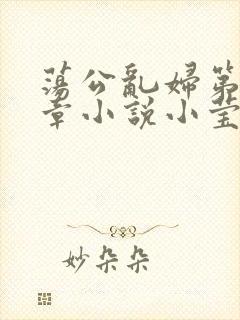 蕩公亂婦第
章小說小莹
妙朵朵